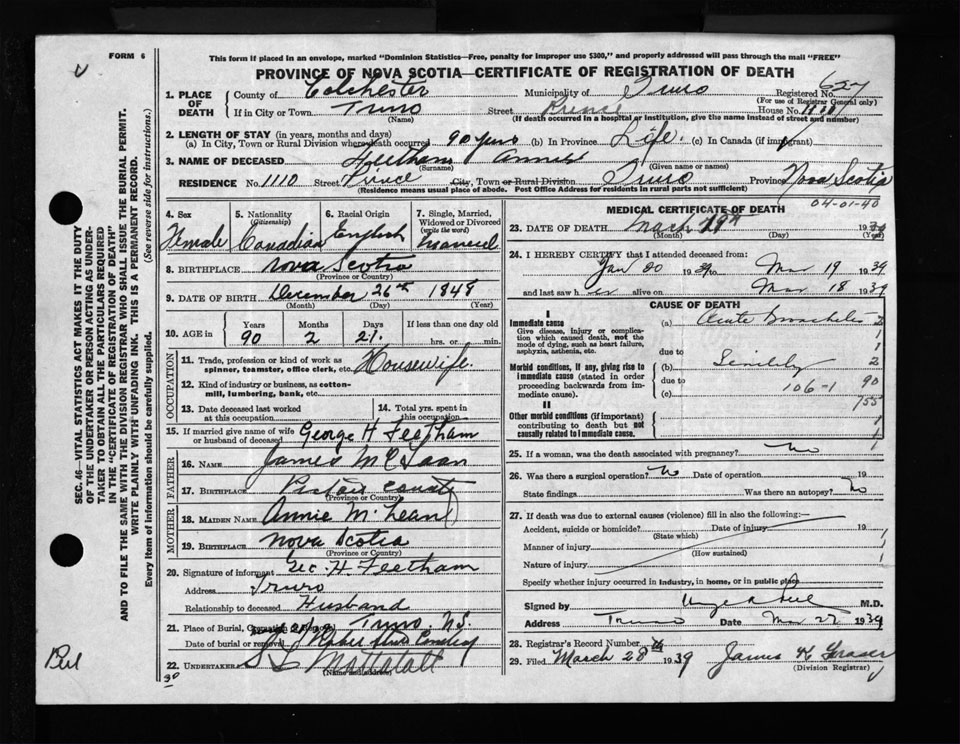 FORM 6
This form if placed in an envelope, marked "Dominion Statistics—Free, penalty for improper use $300," and properly addressed will pass through the mail "FREE"
PROVINCE OF NOVA SCOTIA—CERTIFICATE OF REGISTRATION OF DEATH
627
1. PLACE OF DEATH
County of Colchester Municipality of Truro Registered No.
(For use of Registrar General only)
If in City or Town Truro Street Prince House No. 1110
(Name) (If death occurred in a hospital or institution, give the name instead of street and number)
2. LENGTH OF STAY (in years, months and days)
(a) In City, Town or Rural Division where death occurred 90 years (b) In Province Life. (c) In Canada (if immigrant)
3. NAME OF DECEASED Feetham Annie
(Surname) (Given name or names)
RESIDENCE No. 1110 Street Prince City, Town or Rural Division Truro Province Nova Scotia
(Residence means usual place of abode. Post Office Address for residents in rural parts not sufficient)
4. Sex
Female
5. Nationality (Citizenship)
Canadian
6. Racial Origin
English
7. Single, Married, Widowed or Divorced (write the word)
Married
8. BIRTHPLACE Nova Scotia
(Province or Country)
9. DATE OF BIRTH December 26th 1848
(Month) (Day) (Year)
10. AGE in
Years Months Days If less than one day old
90 2 21. hrs. or min.
OCCUPATION
11. Trade, profession or kind of work as spinner, teamster, office clerk, etc. Housewife.
12. Kind of industry or business, as cotton-mill, lumbering, bank, etc.
13. Date deceased last worked at this occupation
14. Total yrs. spent in this occupation
15. If married give name of wife or husband of deceased George H Feetham
FATHER
16. NAME James
17. BIRTHPLACE Pictou County
(Province or Country)
MOTHER
18. MAIDEN NAME Annie McLean
19. BIRTHPLACE Nova Scotia
(Province or Country)
20. Signature of informant Geo. H. Feetham
Address Truro
Relationship to deceased Husband
21. Place of Burial, Truro, N.S.
Date of burial or removal Cemetery
22. UNDERTAKER
(Name and address)
MEDICAL CERTIFICATE OF DEATH
04-01-40
23. DATE OF DEATH March 19th 19
(Month) (Day) (Year)
24. I HEREBY CERTIFY that I attended deceased from:
Jan 20 1939 to Mar 19 1939
and last saw her alive on Mar 18 1939
CAUSE OF DEATH
I
Immediate cause
Give disease, injury or complication which caused death, not the mode of dying, such as heart failure, asphyxia, asthenia, etc.
(a) Acute Bronchitis
due to
Morbid conditions, if any, giving rise to immediate cause (stated in order proceeding backwards from immediate cause).
(b) Senility
due to
(c) 106-1
90
II
Other morbid conditions (if important) contributing to death but not causally related to immediate cause.
25. If a woman, was the death associated with pregnancy? No
26. Was there a surgical operation? No Date of operation 19
State findings Was there an autopsy? No
27. If death was due to external causes (violence) fill in also the following:—
Accident, suicide or homicide? Date of injury 19
(State which)
Manner of injury
(How sustained)
Nature of injury
Specify whether injury occurred in industry, in home, or in public place
Signed by M.D.
Address Truro Date Mar 27 1939
28. Registrar's Record Number
29. Filed March 28 1939 James K Fraser
(Division Registrar)
SEC. 46—VITAL STATISTICS ACT MAKES IT THE DUTY
OF THE UNDERTAKER OR PERSON ACTING AS UNDERTAKER
TO OBTAIN ALL THE PARTICULARS REQUIRED
IN THE "CERTIFICATE OF REGISTRATION OF DEATH"
AND TO FILE THE SAME WITH THE DIVISION REGISTRAR WHO SHALL ISSUE THE BURIAL PERMIT.
WRITE PLAINLY WITH UNFADING INK. THIS IS A PERMANENT RECORD.
Every item of information should be carefully supplied. (See reverse side for instructions.)